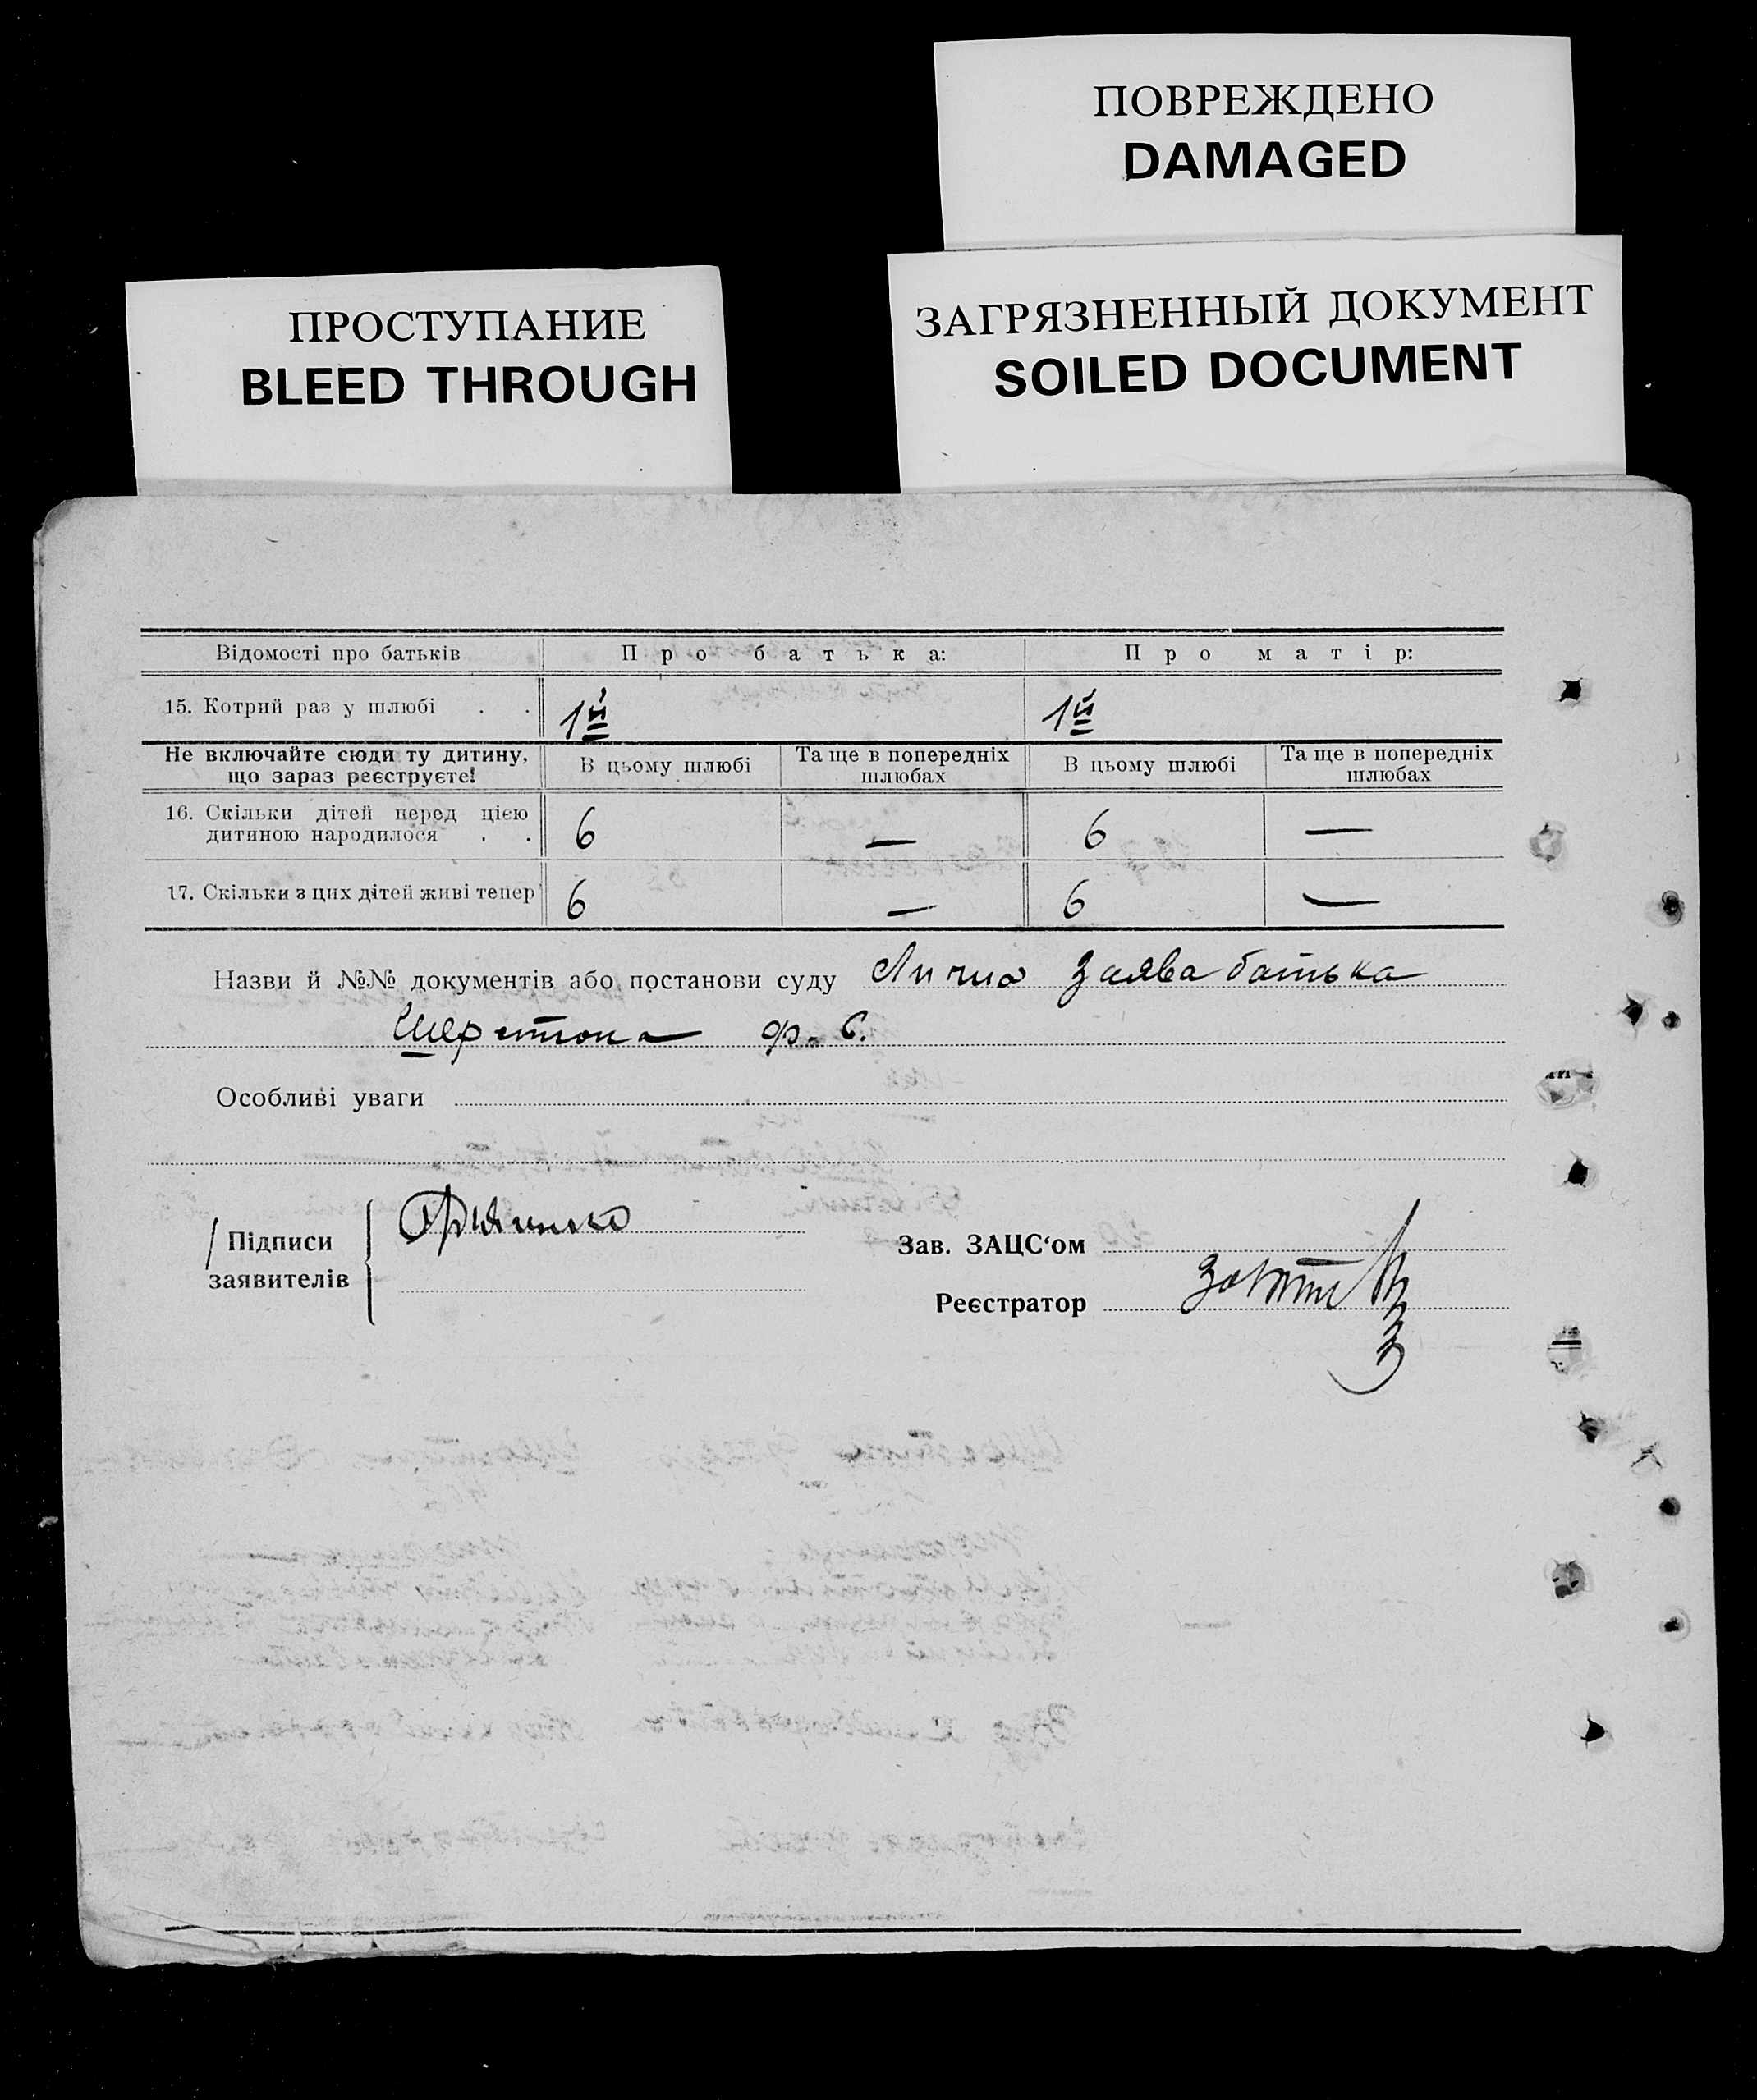 ПОВРЕЖДЕНО
DAMAGED
ПРОСТУПАНИЕ
BLEED THROUGH
ЗАГРЯЗНЕННЫЙ ДОКУМЕНТ
SOILED DOCUMENT
Відомості про батьків Про батька: Про матір:
15. Котрий раз у шлюбі . . 1й 1й
Не включайте сюди ту дитину, що зараз реєструєте! В цьому шлюбі Та ще в попередніх шлюбах В цьому шлюбі Та ще в попередніх шлюбах
16. Скільки дітей перед цією дитиною народилося . . 6 — 6 —
17. Скільки з цих дітей живі тепер 6 — 6 —
Назви й №№ документів або постанови суду заява батька
Особливі уваги
Підписи
заявителів
Зав. ЗАЦС‘ом
Реєстратор